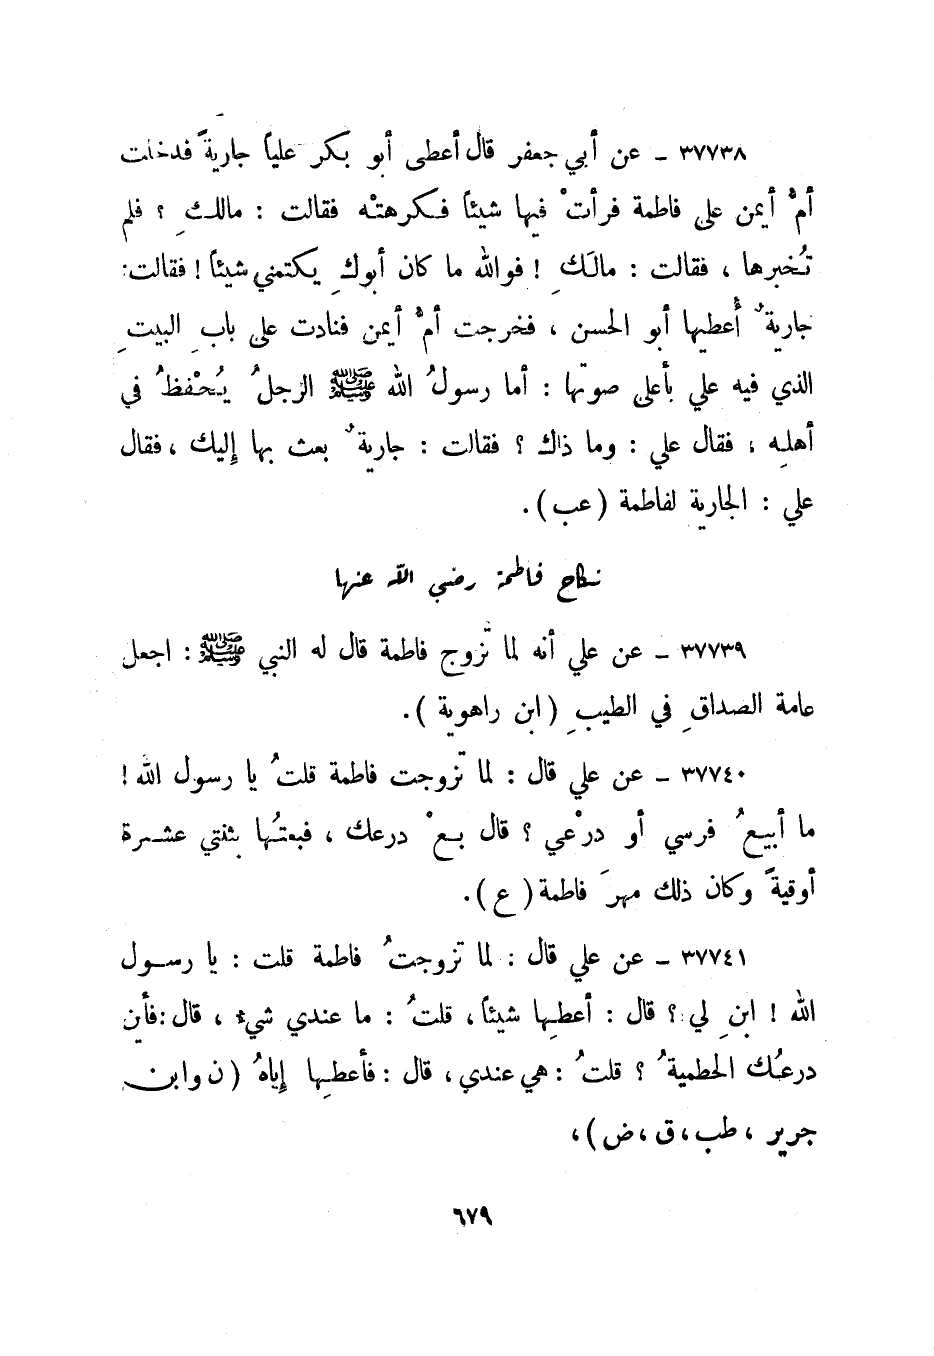 ٣٧٧٣٨ - عن أبي جعفر قال أعطى أبو بكر علياً جاريةً فدخلت
أمُّ أيمن على فاطمة فرأتْ فيها شيئاً فكرهتْه فقالت : مالكِ ؟ فلم
تُخبرها ، فقالت : مالَكِ ! فوالله ما كان أبوكِ يكتمني شيئاً ! فقالت:
جاريةٌ أُعطيها أبو الحسن ، فخرجت أمُّ أيمن فنادت على بابِ البيتِ
الذي فيه علي بأعلى صوتها : أما رسولُ الله ﷺ الرجلُ يُحْفظُ في
أهلِه ، فقال علي : وما ذاك ؟ فقالت : جاريةٌ بعث بها إليك ، فقال
علي : الجارية لفاطمة ( عب ) .
نكاح فاطمة رضي الله عنها
٣٧٧٣٩ - عن علي أنه لما تزوج فاطمة قال له النبي ﷺ : اجعل
عامة الصداقِ في الطيبِ ( ابن راهوية ) .
٣٧٧٤٠ - عن علي قال : لما تزوجت فاطمة قلتُ يا رسول الله !
ما أبيعُ فرسي أو درْعي ؟ قال بعْ درعك ، فبعتُها بثنتي عشرة
أوقيةً وكان ذلك مهرَ فاطمة ( ع ) .
٣٧٧٤١ - عن علي قال : لما تزوجتُ فاطمة قلت : يا رسول
الله ! ابنِ لي ؟ قال : أعطِها شيئاً ، قلتُ : ما عندي شيء ، قال : فأين
درعُك الحطميةُ ؟ قلتُ : هي عندي ، قال : فأعطِها إياهُ ( ن وابن
جرير ، طب ، ق ، ض ) ،
٦٧٩